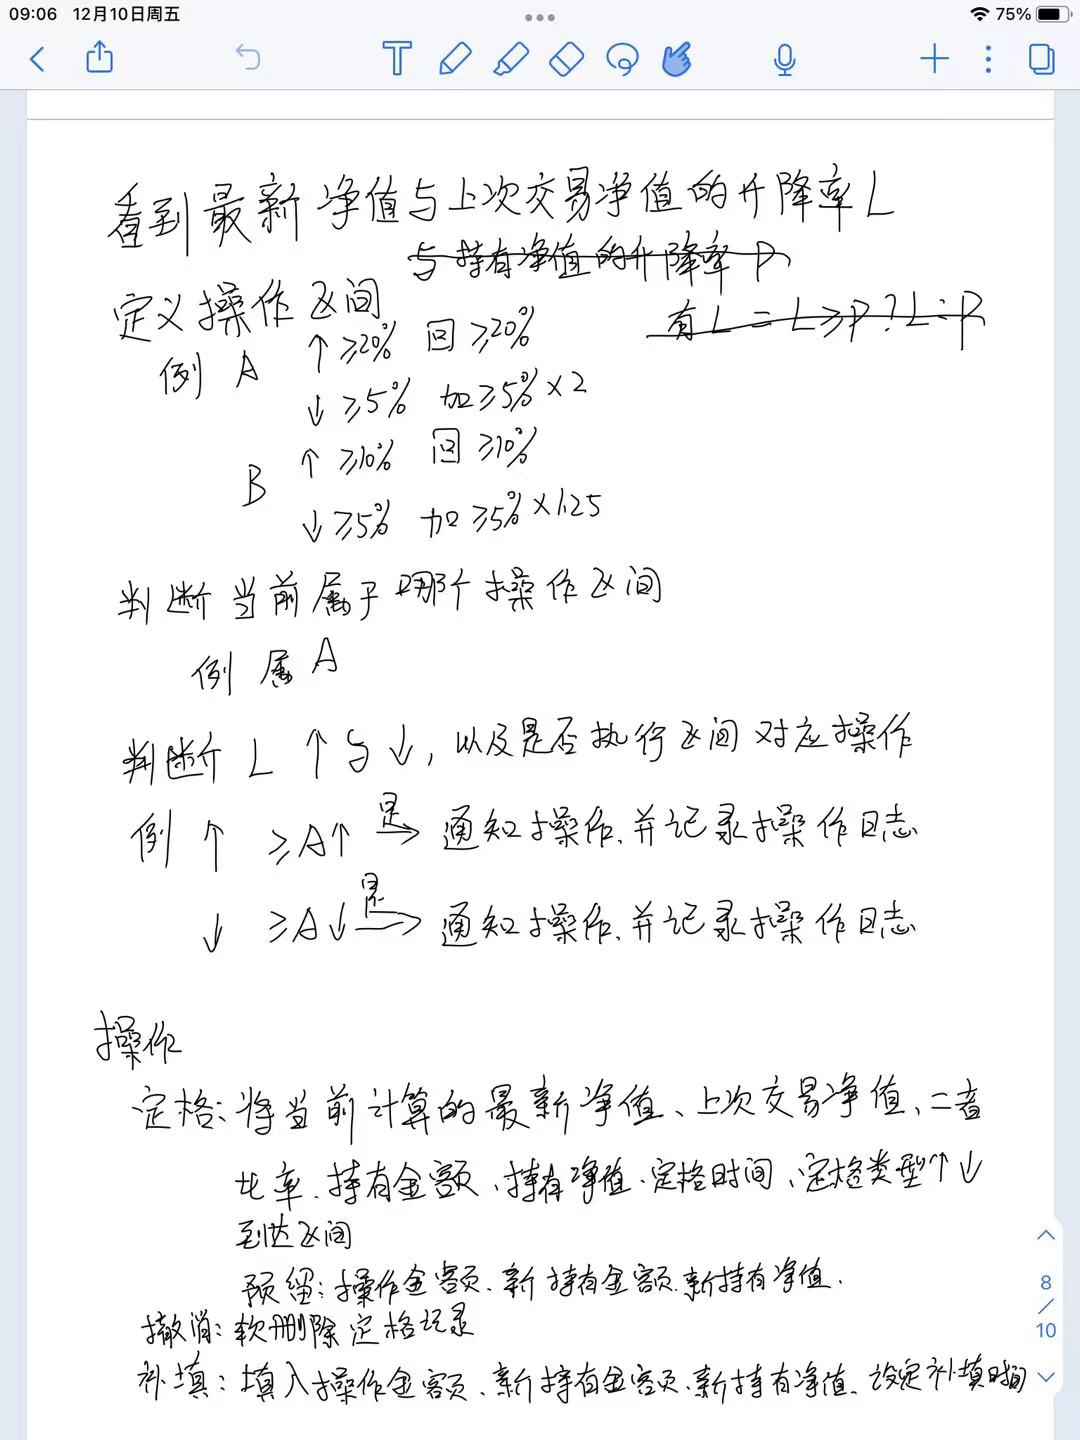 09:06 12月10日周五
75%
看到最新净值与上次交易净值的升降率L
与持有净值的升降率P
定义操作区间
有L=L≥P?L:P
例 A ↑≥20% 回≥20%
↓≥5% 加≥5%×2
B ↑≥10% 回≥10%
↓≥5% 加≥5%×1.25
判断当前属于哪个操作区间
例 属A
判断L ↑与↓,以及是否执行区间对应操作
例 ↑ ≥A↑ 是→ 通知操作、并记录操作日志
↓ ≥A↓ 是→ 通知操作、并记录操作日志
操作
定格:将当前计算的最新净值、上次交易净值、二者
比率、持有金额、持有净值、定格时间、定格类型↑↓
到达区间
预留:操作金额、新持有金额、新持有净值.
撤消:软删除定格记录
补填:填入操作金额、新持有金额、新持有净值、设定补填时间
8
/
10